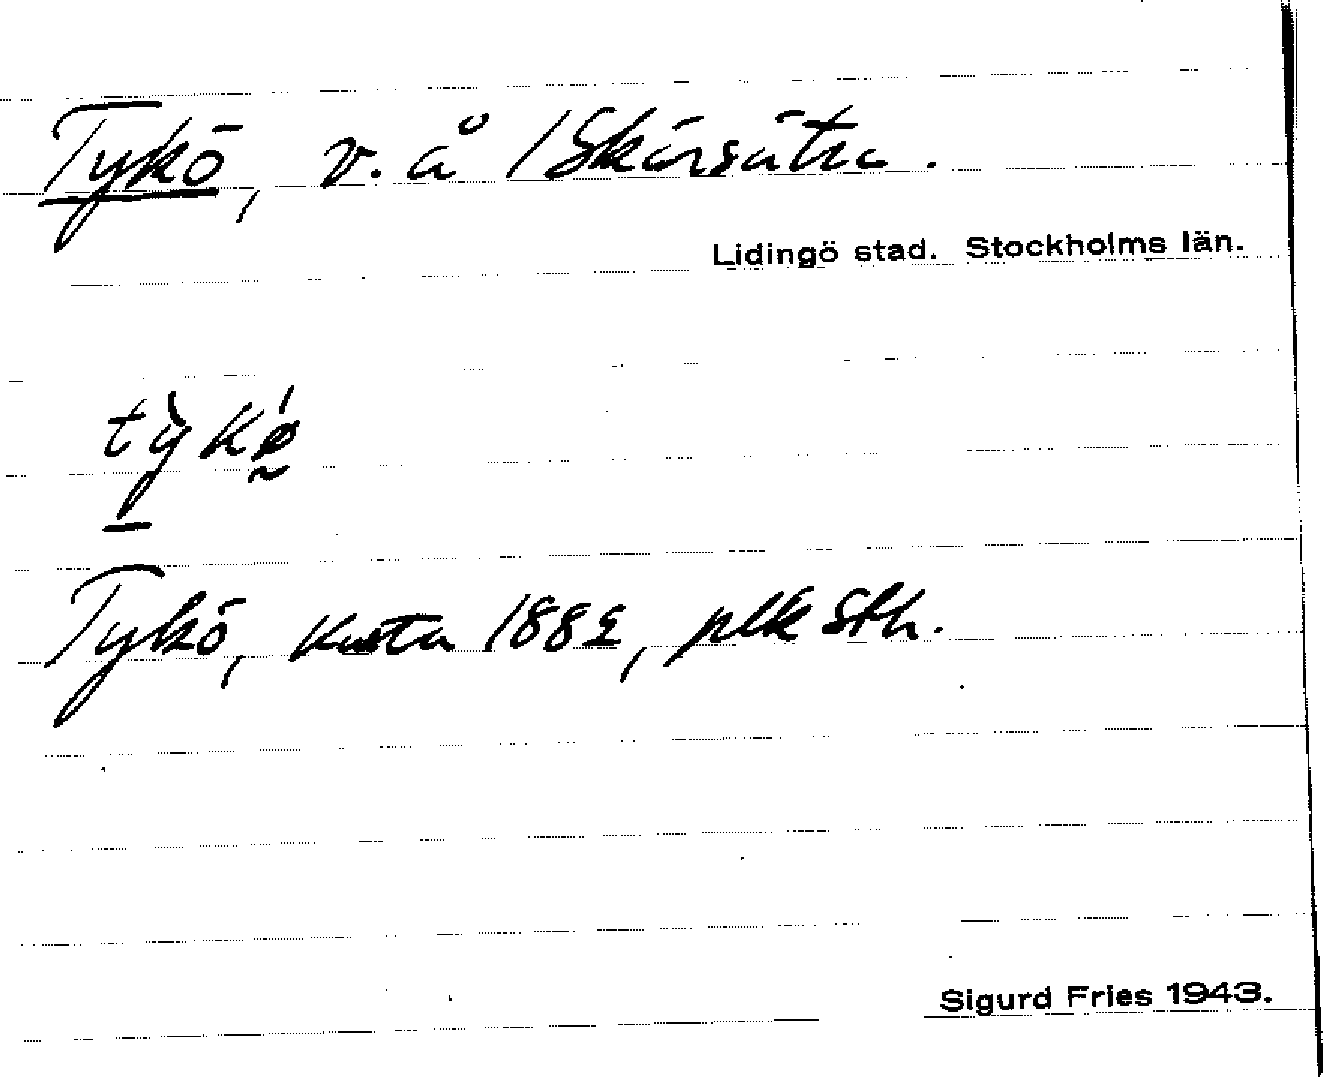 Tykö, v. å /Skärsätra.
Lidingö stad. Stockholms län.
Tykö, Kusta 1882, plk Sth.
Sigurd Fries 1943.